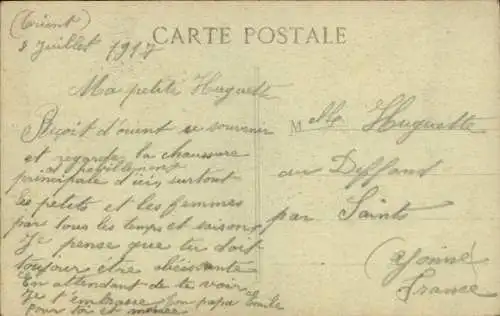 (Orient)
8 Juillet 1917
CARTE POSTALE
Ma petite Huguette
Reçoit d'orient se souvenir
et regarde la chaussure
et habillement
principale d'ici surtout
les petits et les femmes
par tous les temps et saisons
Je pense que tu doit
toujour être obéissante
En attendant de te voir
Je t'embrasse ton papa Emile
pour toi et
Melle Huguette
au Deffand
par Saints
(Yonne)
France